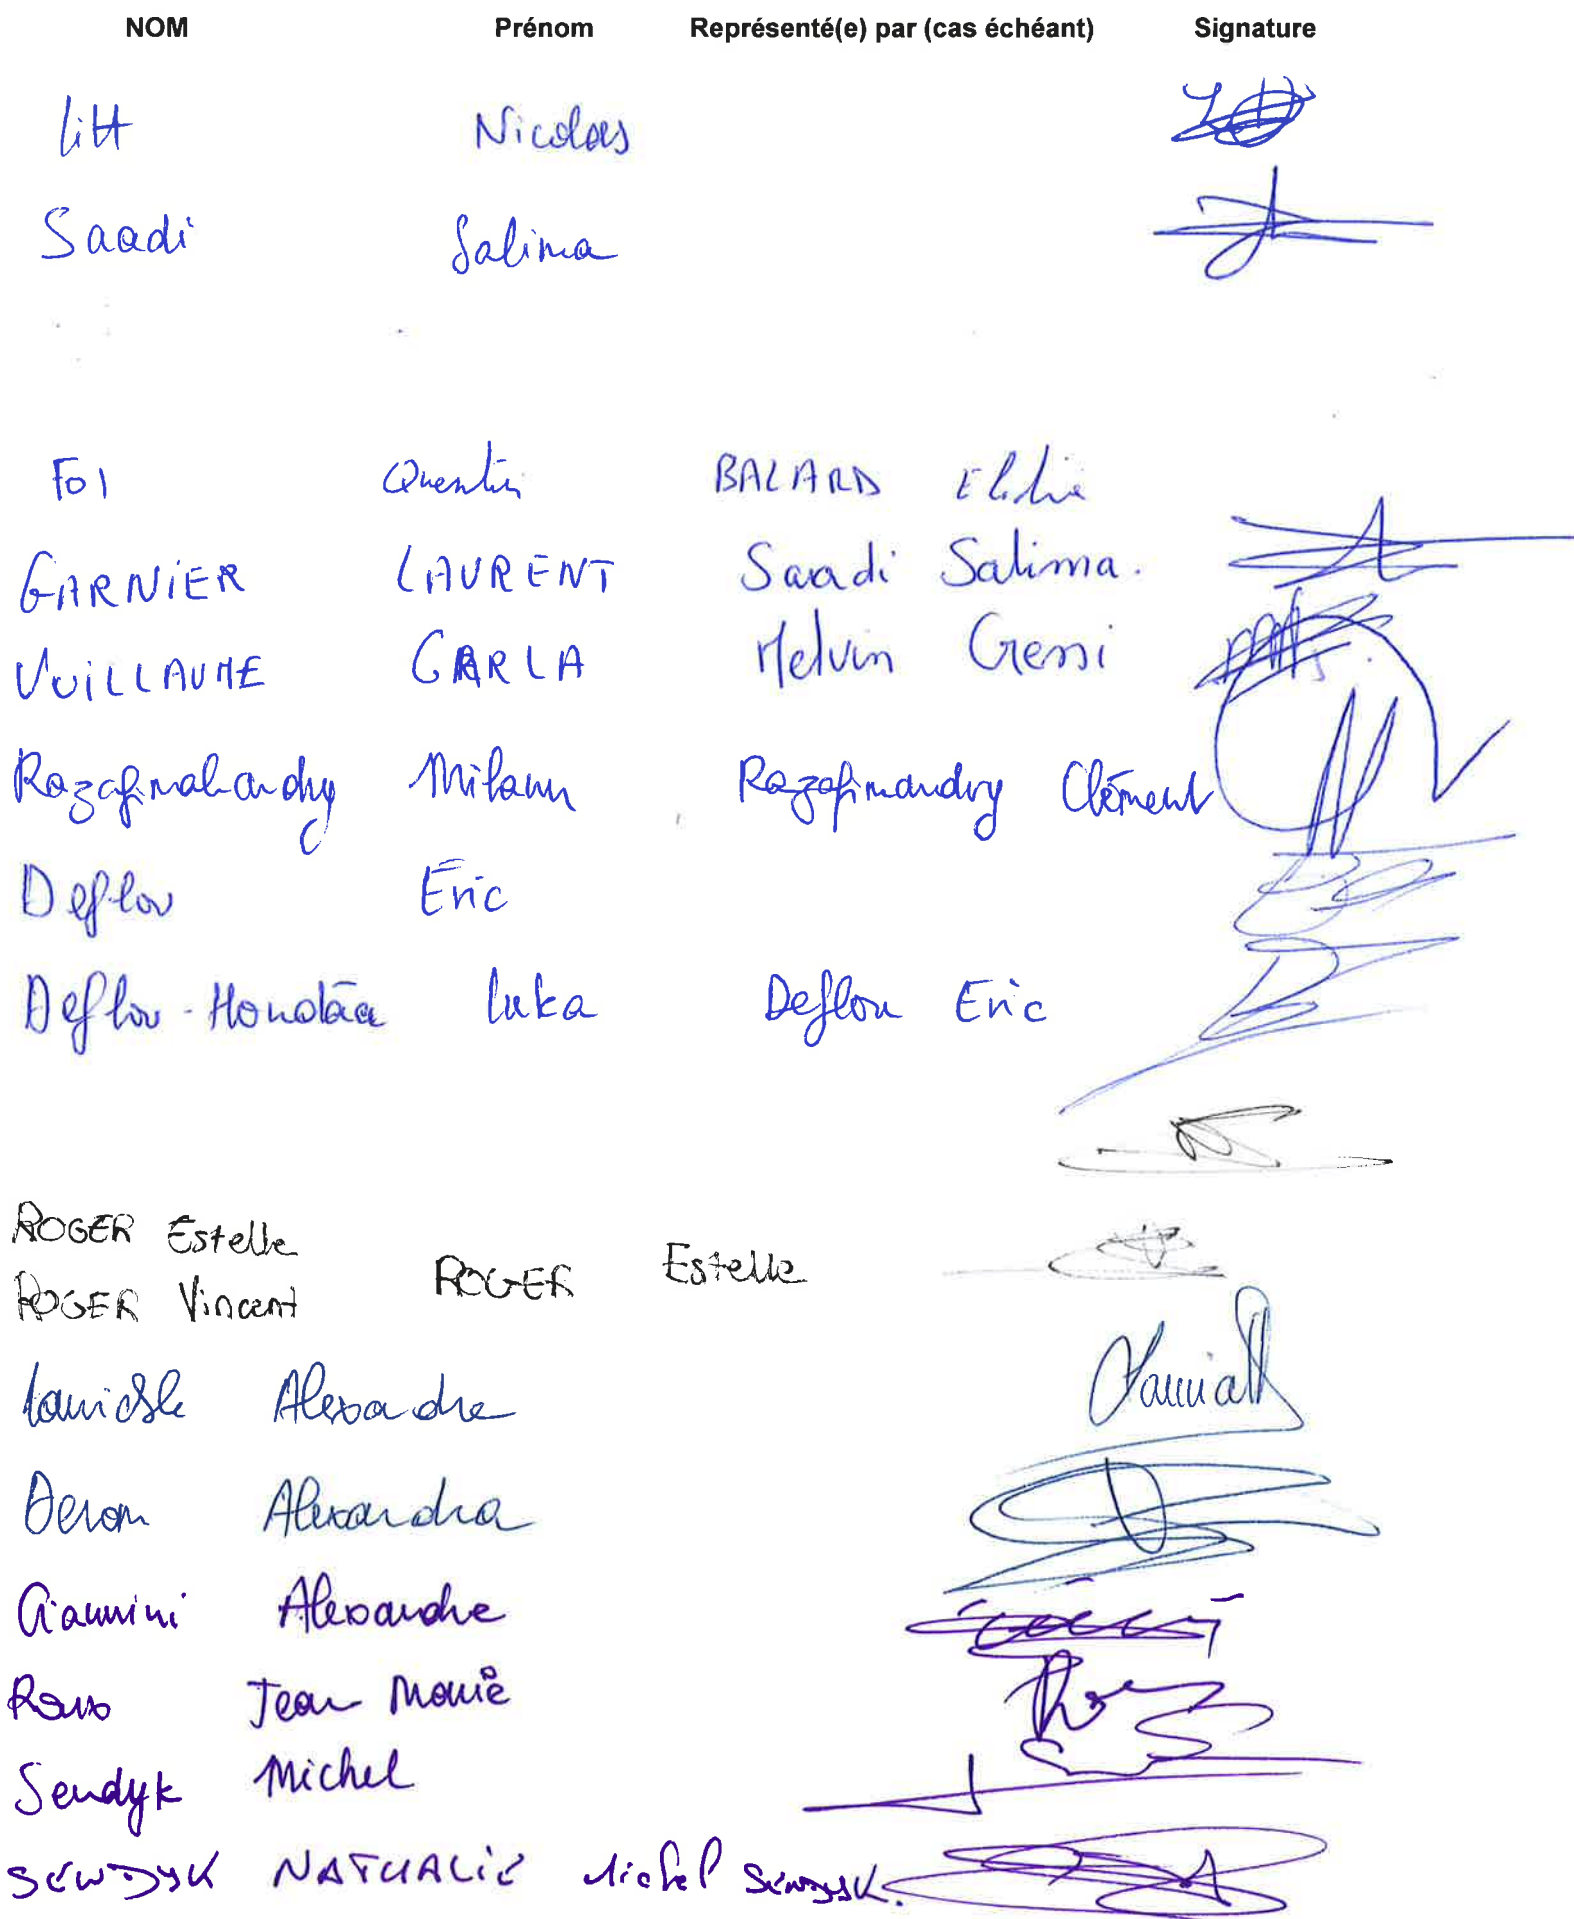 NOM Prénom Représenté(e) par (cas échéant) Signature
Litt Nicolas
Saadi Salima
Fol Quentin BALARD Elodie
GARNIER LAURENT Saadi Salima.
VUILLAUME CARLA Melvin Gessi
Razafimahandry Milann Razafimandry Clément
Deflou Eric
Deflou - Hondāa Luka Deflou Eric
ROGER Estelle
ROGER Vincent ROGER Estelle
Alexandre
Deron Alexandra
Giannini Alexandre
Jean Marie
Sendyk Michel
SENDYK NATHALIE Michel SENDYK.